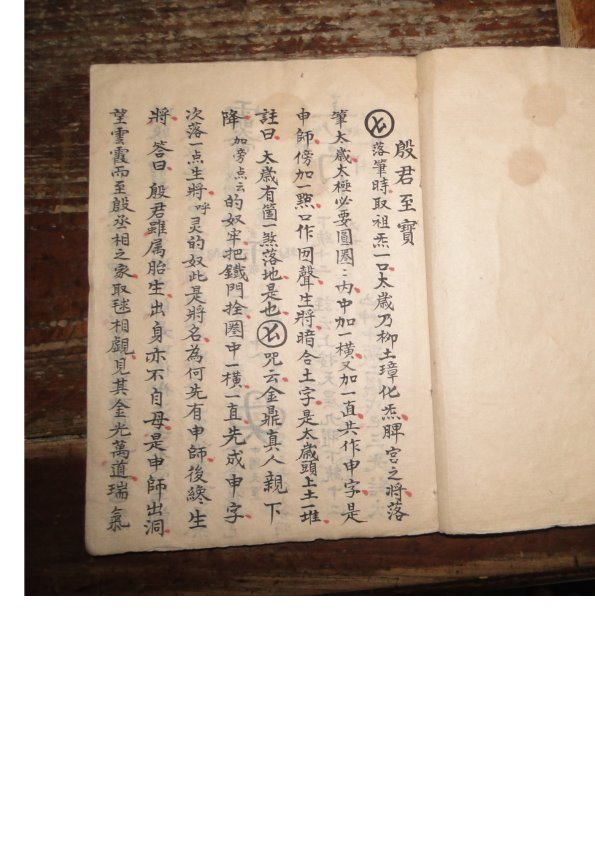 殷君至寶
落筆時取祖炁一口太歲乃柳土璋化炁脾宮之將落
筆太歲太極必要圓圈〻内中加一橫又加一直共作申字是
申師傍加一點口作囙聲生將暗合土字是太歲頭上土一堆
註曰太歲有箇一煞落地是也 咒云金鼎真人親下
降加旁点云的奴牢把鐵門拴圈中一橫一直先成申字
次落一点生將呼灵的奴此是將名為何先有申師後纔生
將答曰殷君雖属胎生出身亦不自母是申師出洞
望雲霞而至殷丞相之家取毬相觀見其金光萬道瑞氣